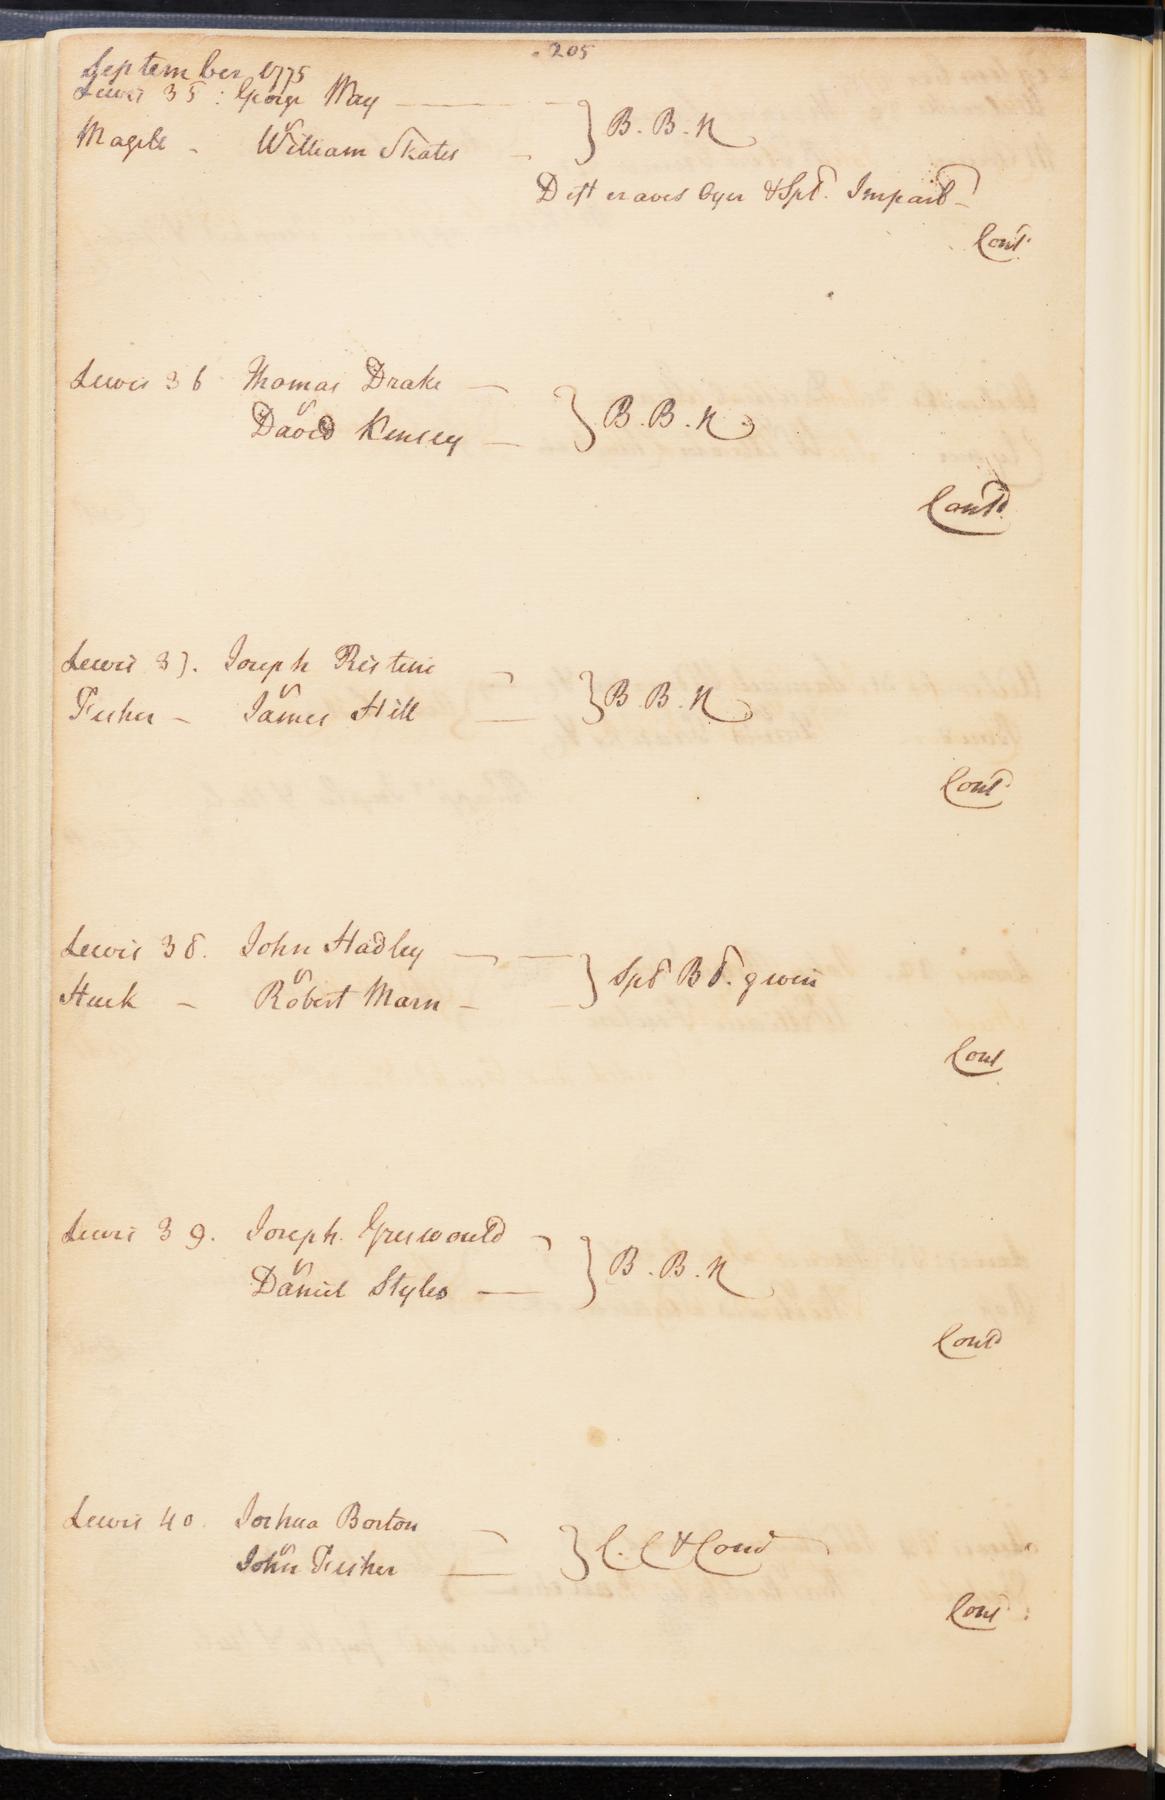 205
September 1775
Lewis 35 : George May
Magill - vs William Skates - } B. B. N
Deft craves Oyer & Spl. Imparl -
Cont
Lewis 36 Thomas Drake
vs David Kensey } B. B. N
Contd
Lewis 37. Joseph Ristine
Fisher - vs James Hill } B. B. N
Contd
Lewis 38. John Hadley
- vs Robert Marn - } Spl Bl. given
Cont
Lewis 39. Joseph Griswould
vs Daniel Styles } B. B. N
Contd
Lewis 40. Joshua Borton
vs John Fisher } C. C & Cond
Cont